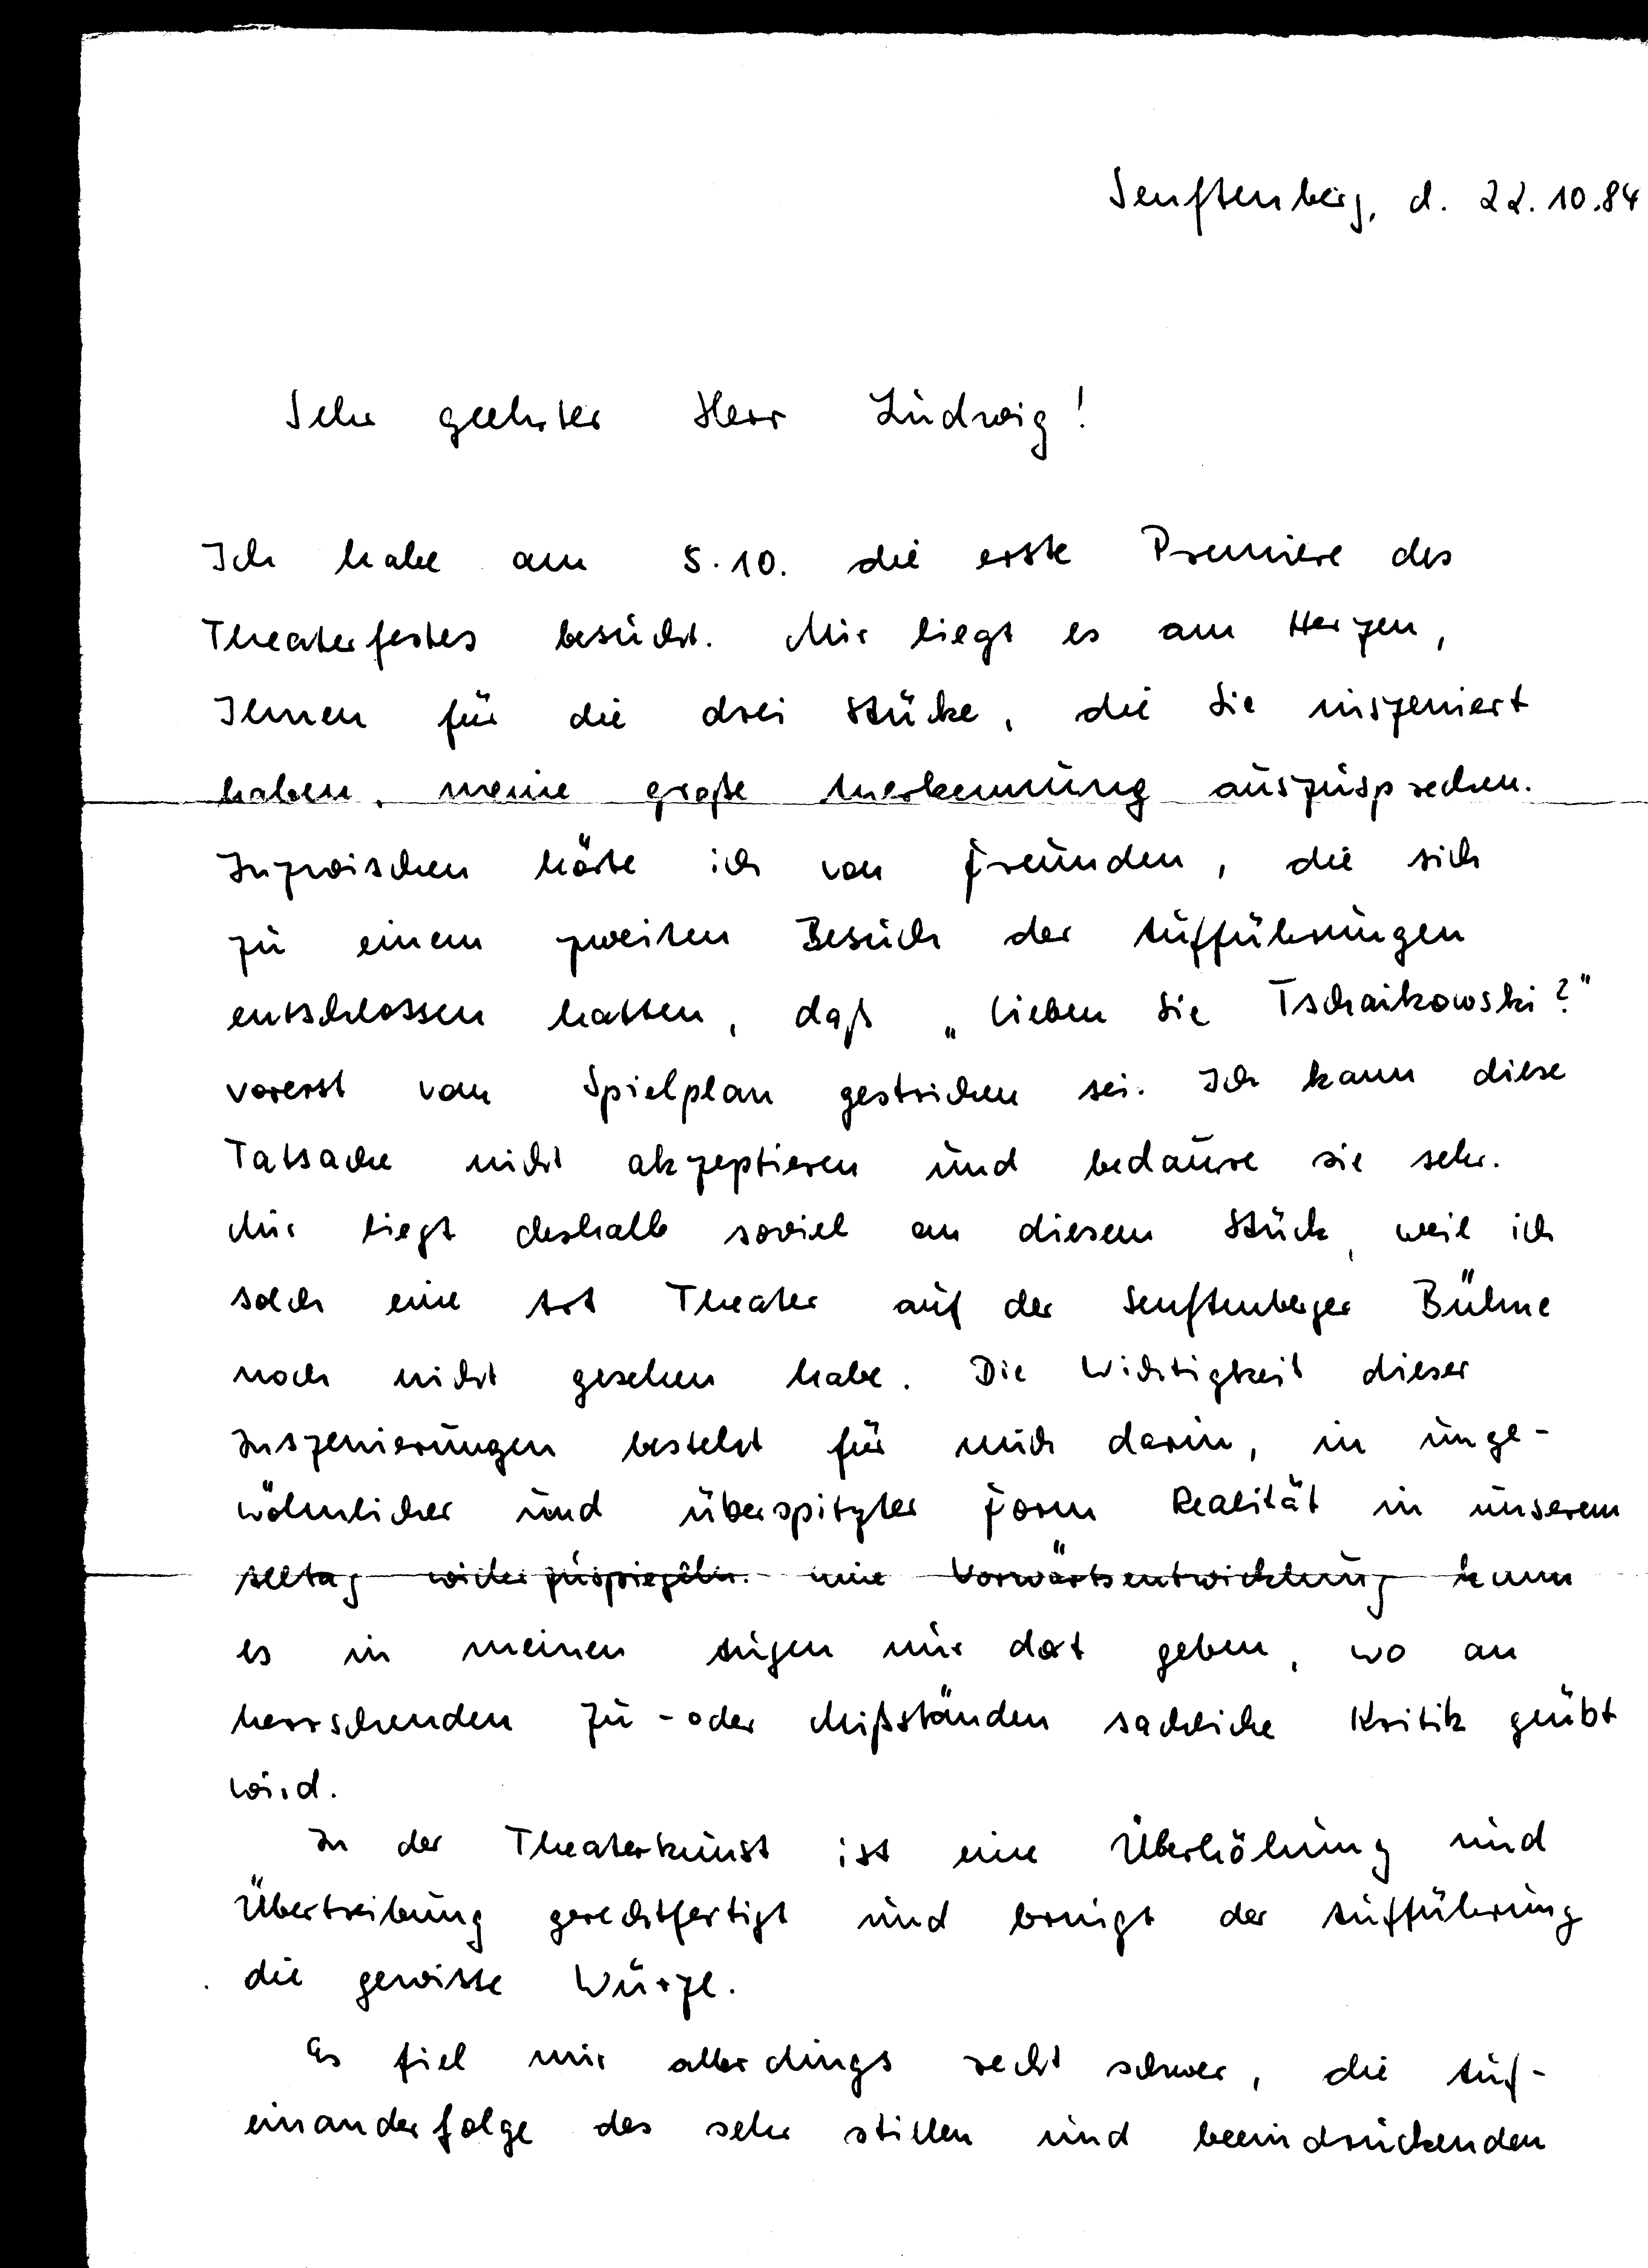 Senftenberg, d. 22.10.84
Sehr geehrter Herr Ludwig!
Ich habe am 5.10. die erste Premiere des
Theaterfestes besucht. Mir liegt es am Herzen,
Ihnen für die drei Stücke, die Sie inszeniert
haben, meine große Anerkennung auszusprechen.
Inzwischen hörte ich von Freunden, die sich
zu einem zweiten Besuch der Aufführungen
entschlossen hatten, daß „Lieben Sie Tschaikowski?"
vorerst vom Spielplan gestrichen sei. Ich kann diese
Tatsache nicht akzeptieren und bedaure sie sehr.
Mir liegt deshalb soviel an diesem Stück, weil ich
solch eine Art Theater auf der Senftenberger Bühne
noch nicht gesehen habe. Die Wichtigkeit dieser
Inszenierungen besteht für mich darin, in unge-
wöhnlicher und überspitzter Form Realität in unserem
Alltag widerzuspiegeln. Eine Vorwärtsentwicklung kann
es in meinen Augen nur dort geben, wo an
herrschenden Zu- oder Mißständen sachliche Kritik geübt
wird.
In der Theaterkunst ist eine Überhöhung und
Übertreibung gerechtfertigt und bringt der Aufführung
die gewisse Würze.
Es fiel mir allerdings recht schwer, die Auf-
einanderfolge des sehr stillen und beeindruckenden